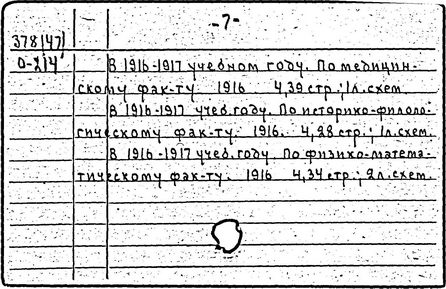 -7-
378(47)
О-214
В 1916-1917 учебном году. По медицин-
скому фак-ту. 1916. 4,39 стр.; 1л.схем.
В 1916-1917 учеб.году. По историко-филоло-
гическому фак-ту. 1916. 4,28 стр.; 1л.схем.
В 1916-1917 учеб.году. По физико-матема-
тическому фак-ту. 1916. 4,34 стр.; 2л.схем.